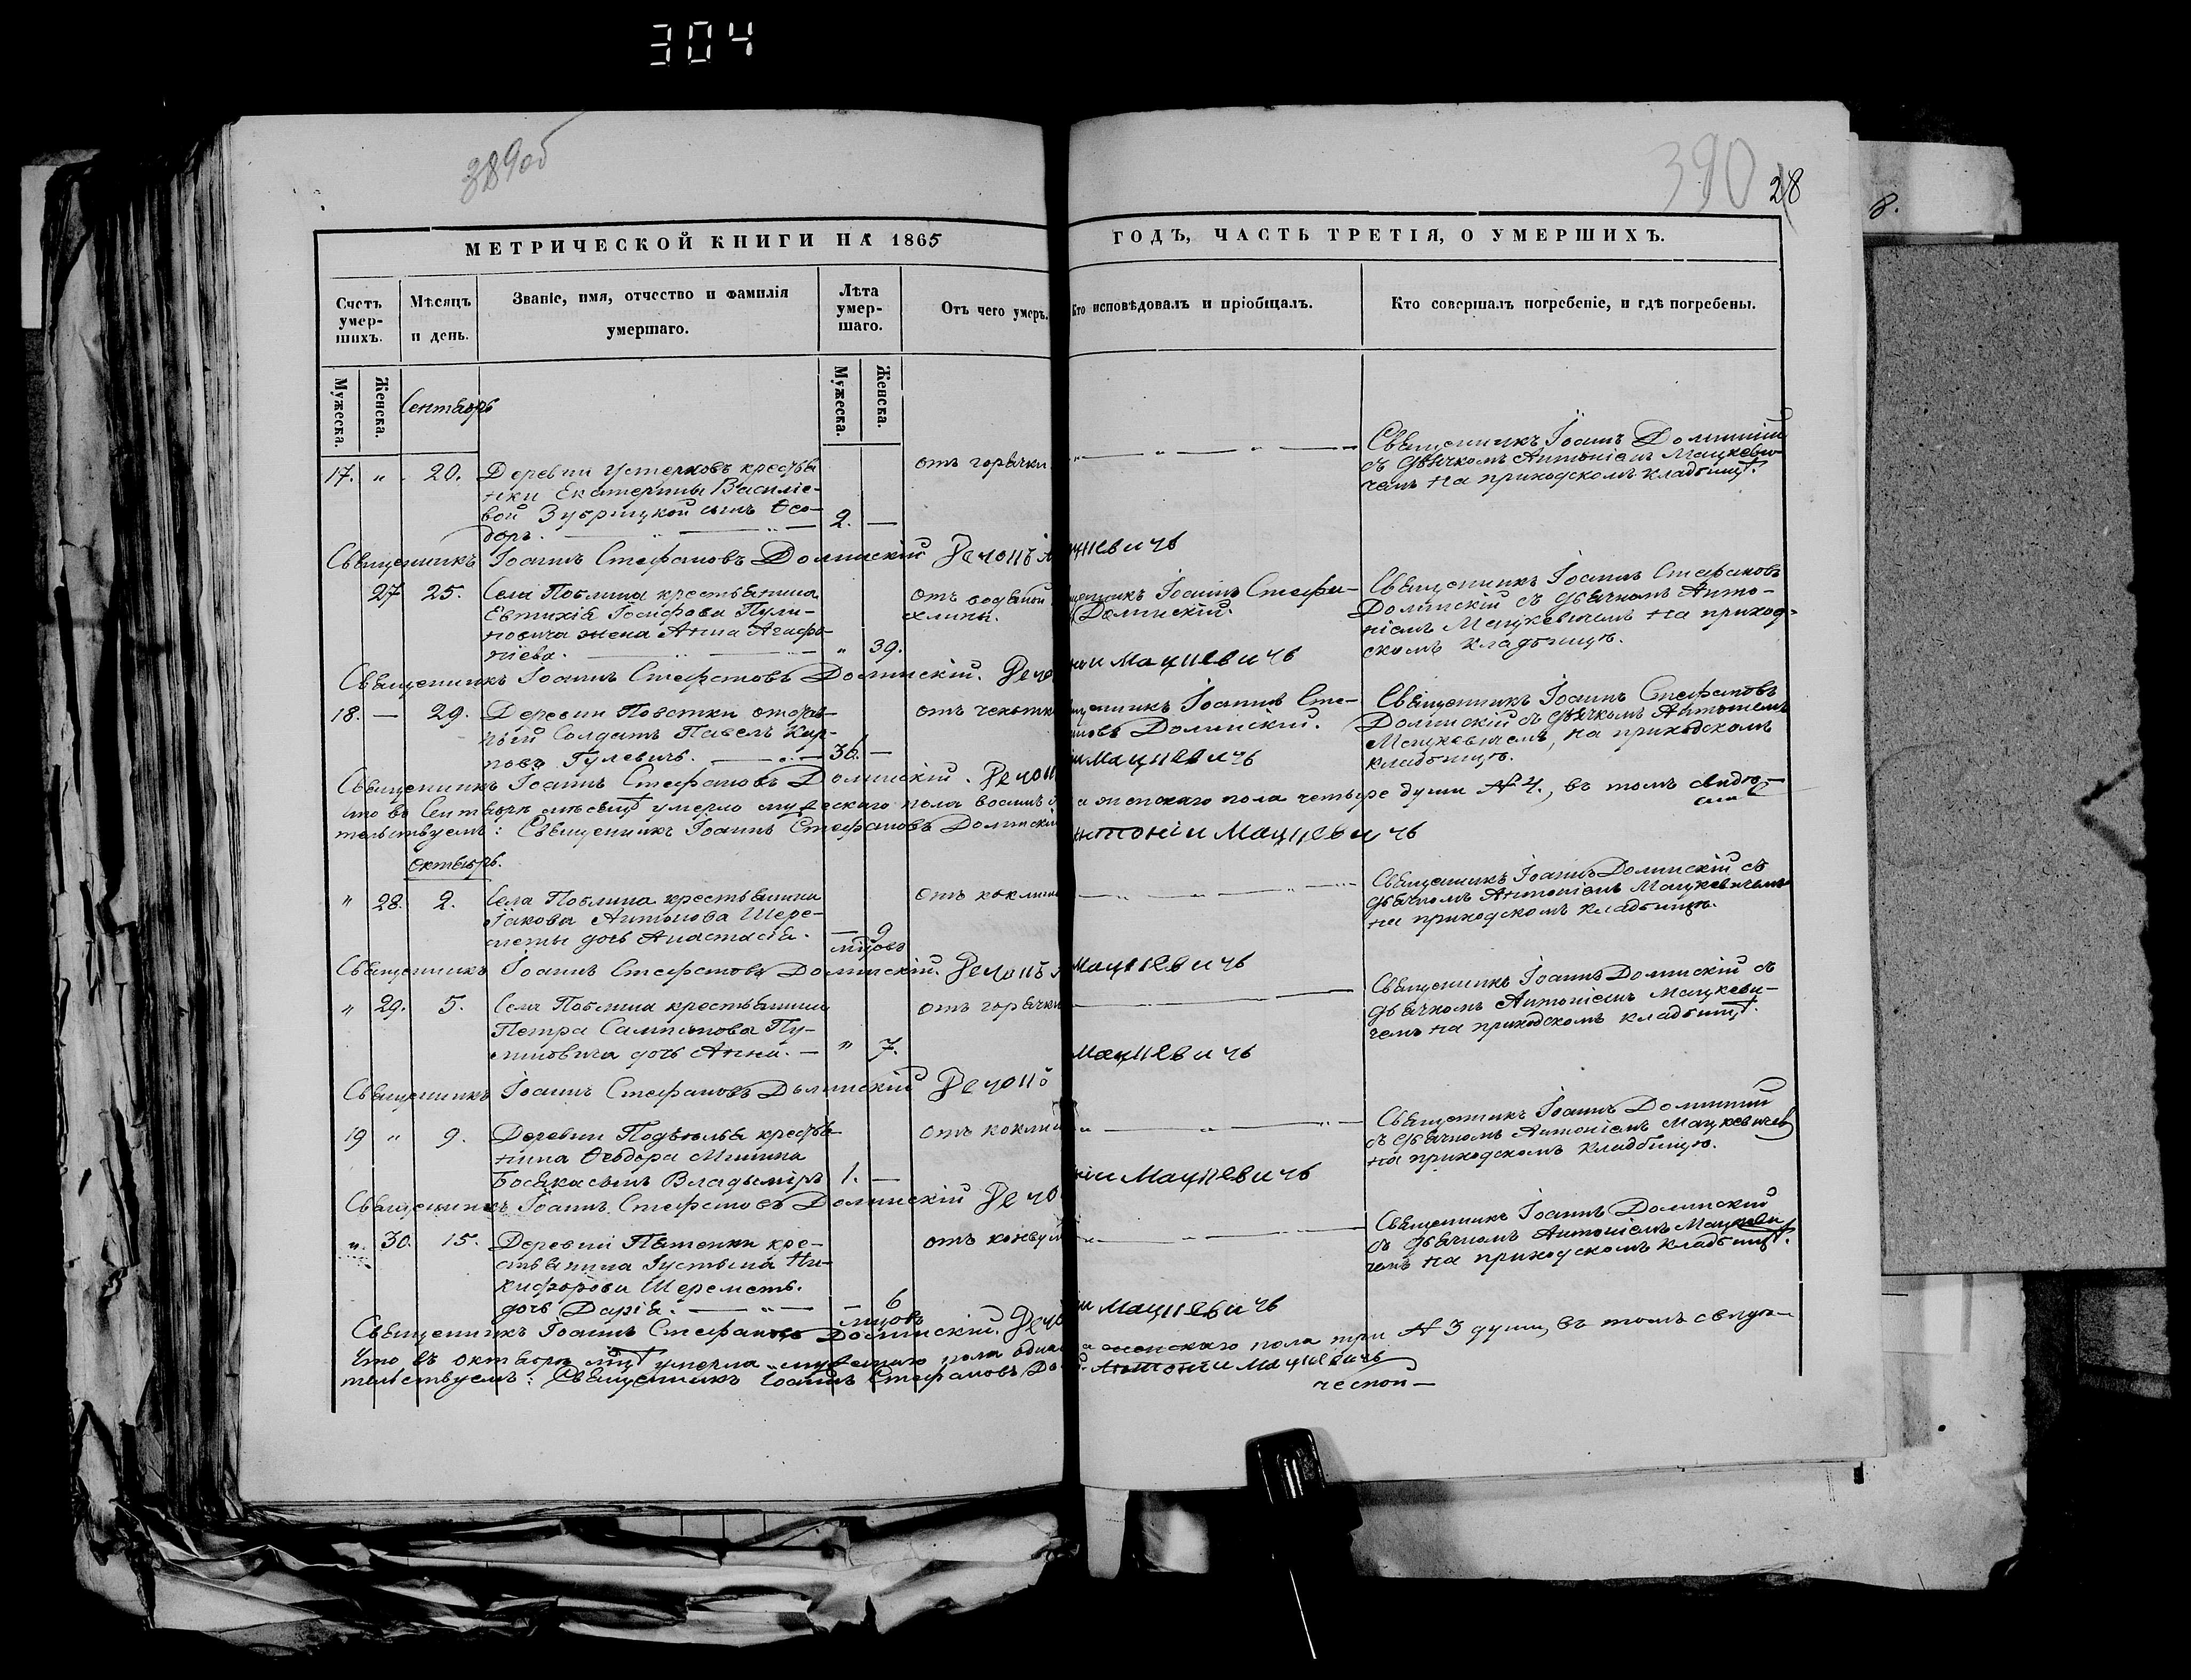 304
389об
390 28
8.
МЕТРИЧЕСКОЙ КНИГИ НА 1865
ГОДЪ, ЧАСТЬ ТРЕТІЯ, О УМЕРШИХЪ.
Счетъ умер-шихъ.
Мѣсяцъ и день.
Званіе, имя, отчество и фамилія умершаго.
Лѣта умер-шаго.
Отъ чего умеръ.
Кто исповѣдовалъ и пріобщалъ.
Кто совершалъ погребеніе, и гдѣ погребены.
Мужеска. Женска.
Мужеска. Женска.
Сентябрь
17. " 20. Деревни Устерховъ кресть
янки Екатерины Василіе-
вой Зубрицкой сынъ Ѳео-
доръ. 2. —
отъ горячки
Священникъ Іоаннъ Долинскій
съ дьячкомъ Антоніемъ Мацкеви-
чемъ на приходскомъ кладбищѣ.
Священникъ Іоаннъ Стефановъ Долинскій
27 25. Села Поблина крестьянина
Евтихія Іосифова Пули-
новича жена Анна Агафо-
ніева. " 39.
отъ водяной
Іоаннъ Стефа-
Долинскій.
Священникъ Іоаннъ Стефановъ
Долинскій съ дьячкомъ Анто-
ніемъ Мацкевичемъ на приход-
скомъ кладбищѣ.
Священникъ Іоаннъ Стефановъ Долинскій.
18. — 29. Деревни
Солдатъ Павелъ Кар-
повъ Гулевичъ. 36. —
отъ чехотки
Іоаннъ Сте-
Долинскій.
Священникъ Іоаннъ Стефановъ
Долинскій съ дьячкомъ Антоніемъ
Мацкевичемъ, на приходскомъ
кладбищѣ.
Священникъ Іоаннъ Стефановъ Долинскій.
что въ Сентябрѣ мѣсяцѣ умерло мужескаго пола восемь а женскаго пола четыре души № 4., въ томъ свидѣ-
тельствуемъ: Священникъ Іоаннъ Стефановъ Долинскій
Октябрь.
" 28. 2. Села Поблина крестьянина
Іакова Антонова Шере-
меты дочь Анастасія. — 9
мѣсяцовъ
отъ коклюша
Священникъ Іоаннъ Долинскій съ
дьячкомъ Антоніемъ Мацкевичемъ
на приходскомъ кладбищѣ.
Священникъ Іоаннъ Стефановъ Долинскій.
" 29. 5. Села Поблина крестьянина
Петра Сампсонова Пу-
линовича дочь Анна. — " 7.
отъ горячки
Священникъ Іоаннъ Долинскій съ
дьячкомъ Антоніемъ Мацкеви-
чемъ на приходскомъ кладбищѣ.
Священникъ Іоаннъ Стефановъ Долинскій
19 " 9. Деревни кресть
янина Ѳеодора
Босякасынъ Владыміръ 1. —
отъ коклюша
Священникъ Іоаннъ Долинскій
съ дьячкомъ Антоніемъ Мацкевичемъ
на приходскомъ кладбищѣ.
Священникъ Іоаннъ Стефановъ Долинскій
" 30. 15. Деревни кре-
стьянина Густына Ни-
кифорова Шереметъ.
дочь Дарія. — 6
мѣсяцовъ
Священникъ Іоаннъ Долинскій
съ дьячкомъ Антоніемъ Мацкеви
чемъ на приходскомъ кладбищѣ.
Священникъ Іоаннъ Стефановъ Долинскій.
что въ октябрѣ умерла мужескаго пола одна а женскаго пола три № 3 души, въ томъ свидѣ-
тельствуемъ: Священникъ Іоаннъ Стефановъ